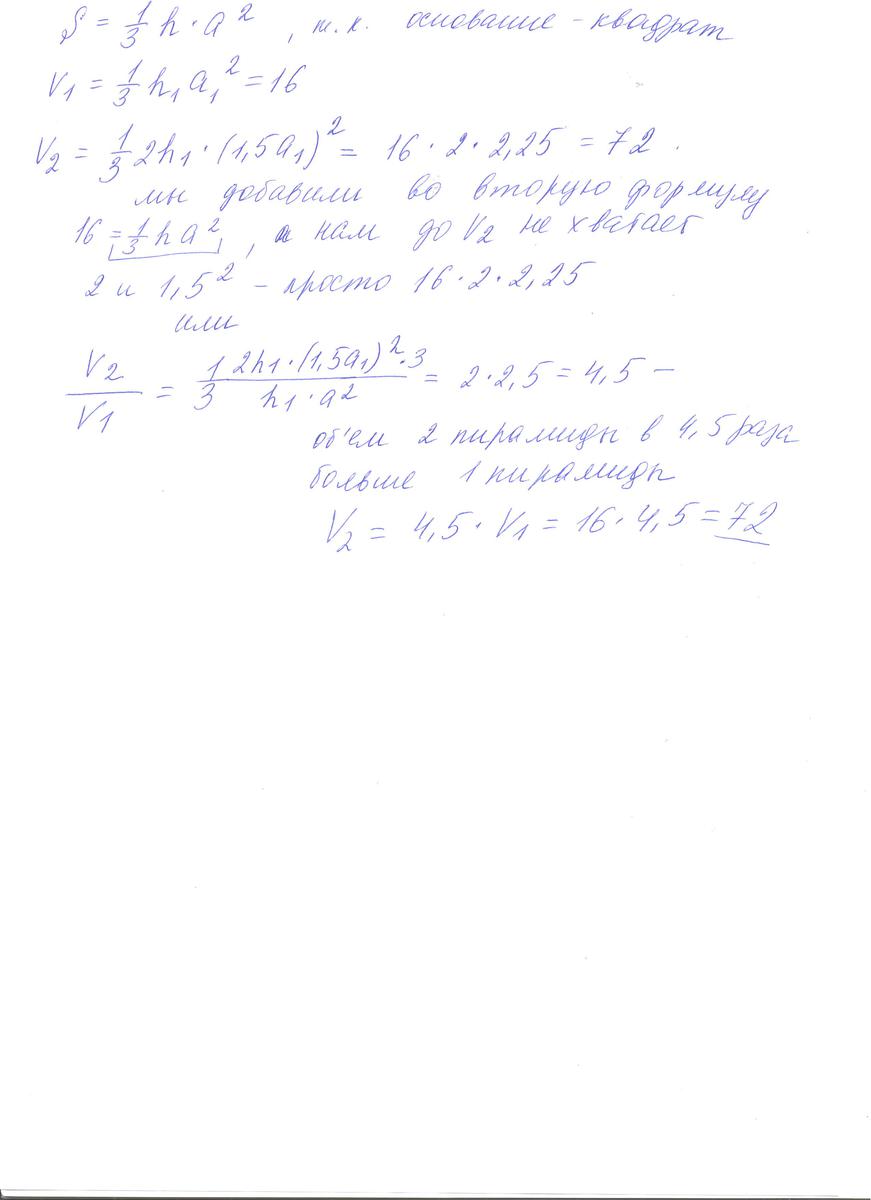 S = 1/3 h · a², т.к. основание - квадрат
V₁ = 1/3 h₁ a₁² = 16
V₂ = 1/3 2h₁ · (1,5a₁)² = 16 · 2 · 2,25 = 72.
мы добавили во вторую формулу
16 = 1/3 h a², а нам до V₂ не хватает
2 и 1,5² - просто 16 · 2 · 2,25
или
V₂/V₁ = 1/3 2h₁ · (1,5a₁)² · 3 / h₁ · a² = 2 · 2,5 = 4,5 —
об'ем 2 пирамиды в 4,5 раза
больше 1 пирамиды
V₂ = 4,5 · V₁ = 16 · 4,5 = 72